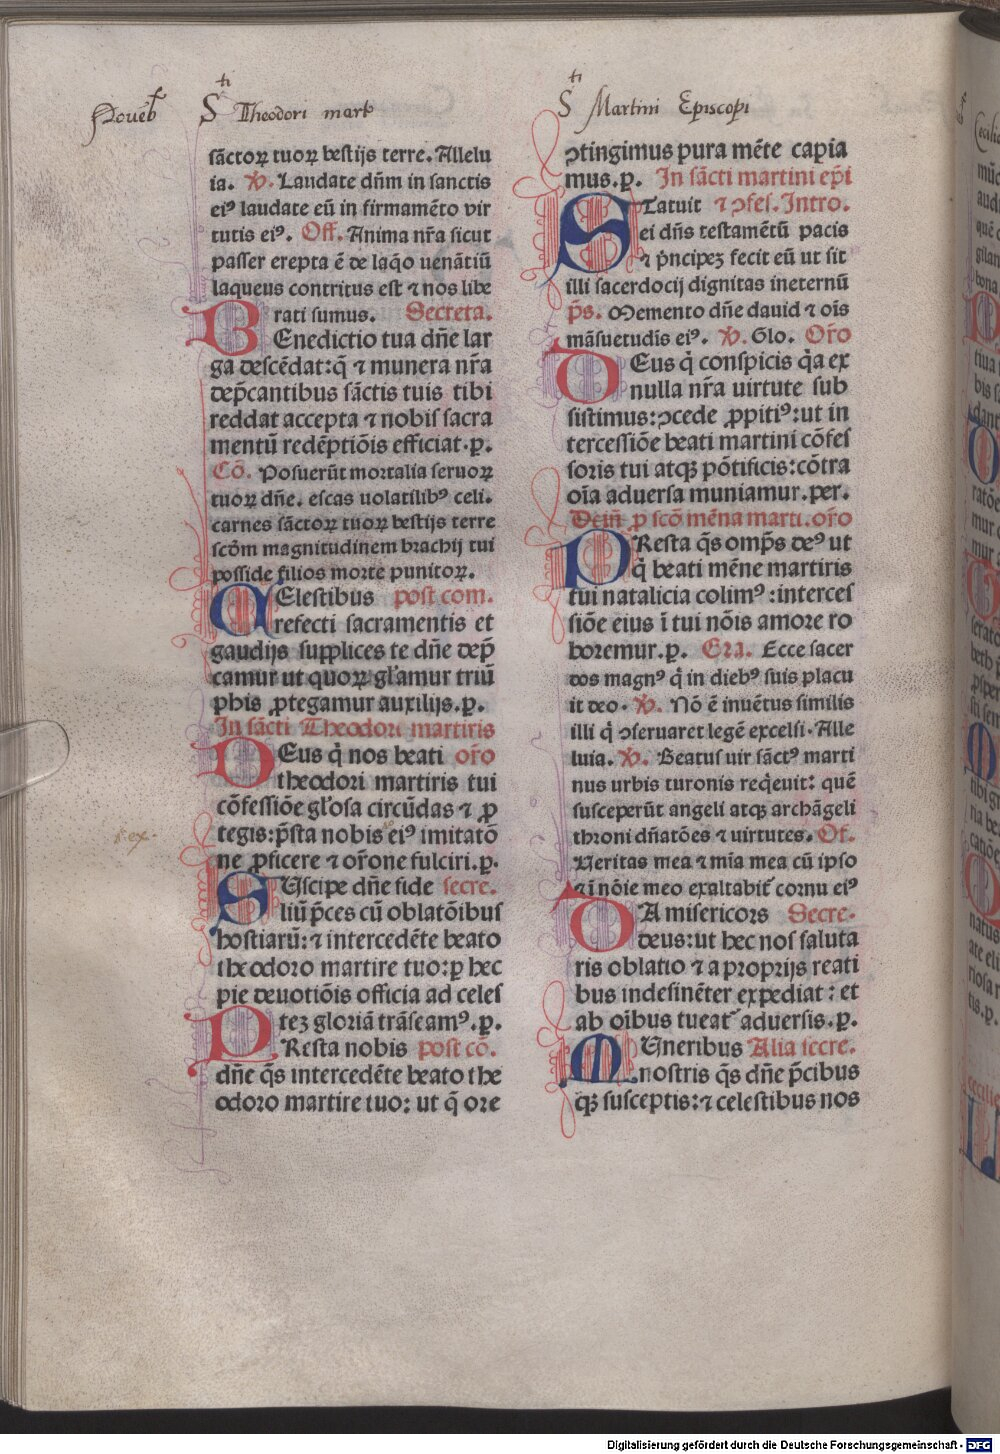 Noueb͛
S ti Theodori mart
S ti Martini Episcopi
sāctoꝝ tuoꝝ bestijs terre. Allelu
ia. ℣. Laudate dn̄m in sanctis
eiꝰ laudate eū in firmamēto vir
tutis eiꝰ. Off. Anima nr̄a sicut
passer erepta ē de laq̄o uenātiū
laqueus contritus est ⁊ nos libe
rati sumus. Secreta.
BEnedictio tua dn̄e lar
ga descēdat: q̄ ⁊ munera nr̄a
dep̄cantibus sāctis tuis tibi
reddat accepta ⁊ nobis sacra
mentū redēptiōis efficiat. ꝑ.
Cō. Posuerūt mortalia seruoꝝ
tuoꝝ dn̄e. escas uolatilibꝰ celi.
carnes sāctoꝝ tuoꝝ bestijs terre
scd̄m magnitudinem brachij tui
posside filios morte punitoꝝ.
CElestibus post com.
refecti sacramentis et
gaudijs supplices te dn̄e dep̄
camur ut quoꝝ gl̄amur triū
phis ꝓtegamur auxilijs. ꝑ.
In sācti Theodori martiris
DEus q̄ nos beati or̄o
theodori martiris tui
cōfessiōe gl̄osa circūdas ⁊ ꝓ
tegis: p̄sta nobis eiꝰ imitatō
ne ꝓficere ⁊ or̄one fulciri. ꝑ.
SUscipe dn̄e fide secre.
liū p̄ces cū oblatōibus
hostiarū: ⁊ intercedēte beato
theodoro martire tuo: ꝑ hec
pie deuotiōis officia ad celes
tez gloriā trāseamꝰ. ꝑ.
PResta nobis post cō.
dn̄e q̄s intercedēte beato the
odoro martire tuo: ut q̄ ore
ↄtingimus pura mēte capia
mus. ꝑ. In sācti martini ep̄i
STatuit ⁊ ↄfes. Intro.
ei dn̄s testamētū pacis
⁊ p̄ncipez fecit eū ut sit
illi sacerdocij dignitas ineternū
p̄s. Memento dn̄e dauid ⁊ oīs
māsuetudīs eiꝰ. ℣. Glo. Or̄o
DEus q̄ conspicis q̄a ex
nulla nr̄a uirtute sub
sistimus: ↄcede ꝓpitiꝰ: ut in
tercessiōe beati martini cōfes
soris tui atqꝫ pōtificis: cōtra
oīa aduersa muniamur. per.
Dein̄ ꝓ scō mēna marti. or̄o
PResta q̄s omp̄s deꝰ ut
q̄ beati mēne martiris
tui natalicia colimꝰ: interces
siōe eius ī tui nōis amore ro
boremur. ꝑ. Gra. Ecce sacer
dos magnꝰ q̄ in diebꝰ suis placu
it deo. ℣. Nō ē inuētus similis
illi q̄ ↄseruaret legē excelsi. Alle
luia. ℣. Beatus uir sāctꝰ marti
nus urbis turonis req̄euit: quē
susceperūt angeli atqꝫ archāgeli
throni dn̄atōes ⁊ uirtutes. Of.
Ueritas mea ⁊ mīa mea cū ipso
⁊ ī nōie meo exaltabit᷑ cornu eiꝰ
DA misericors Secre.
deus: ut hec nos saluta
ris oblatio ⁊ a proprijs reati
bus indesinēter expediat: et
ab oībus tueat᷑ aduersis. ꝑ.
MUneribus Alia secre.
nostris q̄s dn̄e p̄cibus
qꝫ susceptis: ⁊ celestibus nos
Digitalisierung gefördert durch die Deutsche Forschungsgemeinschaft - DFG